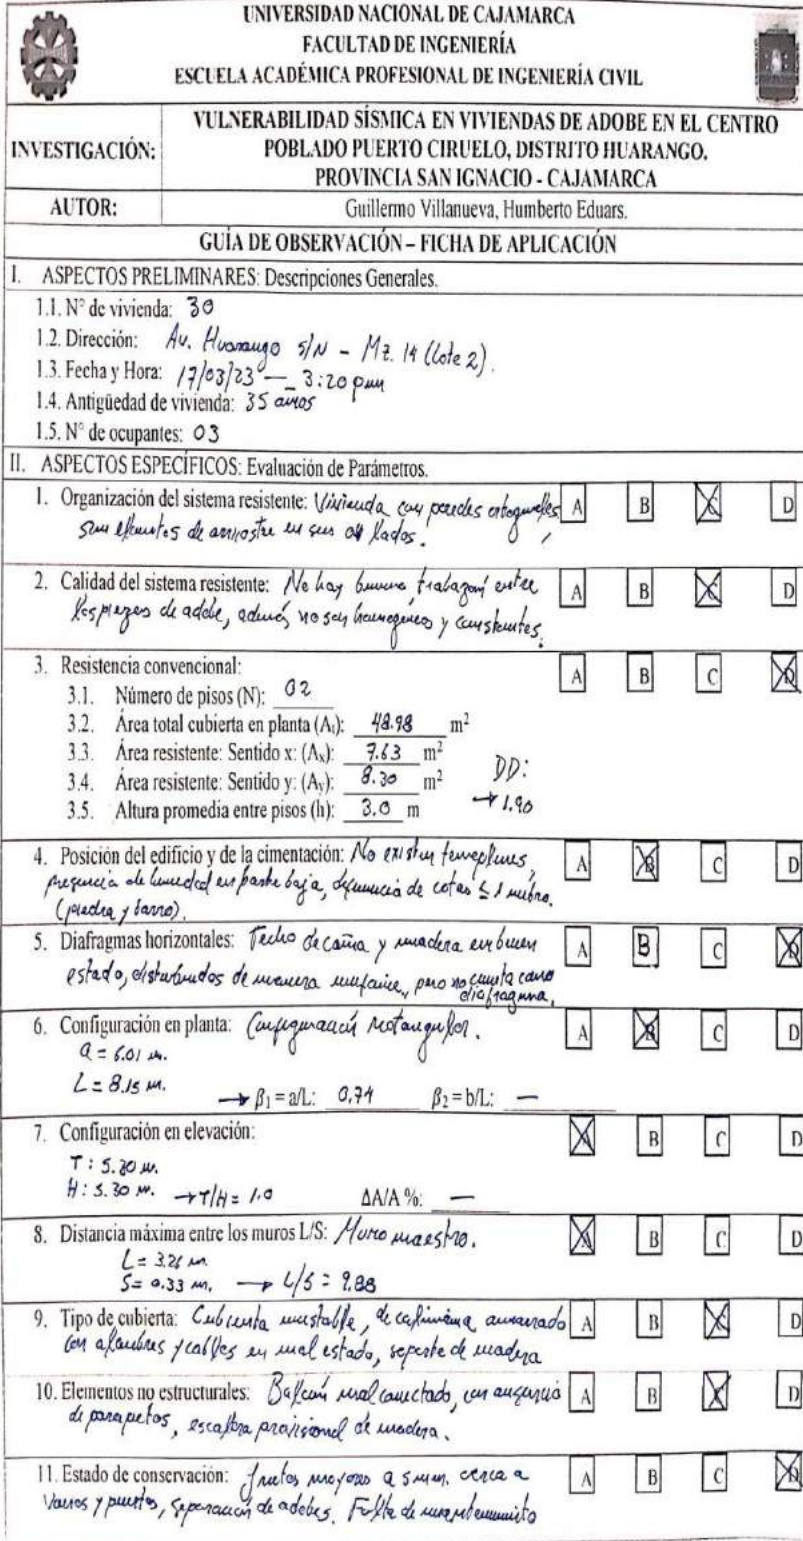 UNIVERSIDAD NACIONAL DE CAJAMARCA
FACULTAD DE INGENIERÍA
ESCUELA ACADÉMICA PROFESIONAL DE INGENIERÍA CIVIL
INVESTIGACIÓN:
VULNERABILIDAD SÍSMICA EN VIVIENDAS DE ADOBE EN EL CENTRO
POBLADO PUERTO CIRUELO, DISTRITO HUARANGO,
PROVINCIA SAN IGNACIO - CAJAMARCA
AUTOR: Guillermo Villanueva, Humberto Eduars.
GUÍA DE OBSERVACIÓN – FICHA DE APLICACIÓN
I. ASPECTOS PRELIMINARES: Descripciones Generales.
1.1. N° de vivienda: 30
1.2. Dirección: Av. Huarango s/N - Mz. 14 (lote 2).
1.3. Fecha y Hora: 17/03/23 — 3:20 pm
1.4. Antigüedad de vivienda: 35 años
1.5. N° de ocupantes: 03
II. ASPECTOS ESPECÍFICOS: Evaluación de Parámetros.
1. Organización del sistema resistente: Vivienda con paredes ortogonales, A B C D
sin elementos de arriostre en sus lados.
2. Calidad del sistema resistente: No hay buena trabazón entre A B C D
las piezas de adobe, además no son homogéneos y constantes.
3. Resistencia convencional: A B C D
3.1. Número de pisos (N): 02
3.2. Área total cubierta en planta (At): 48.98 m²
3.3. Área resistente: Sentido x: (Ax): 7.63 m²
3.4. Área resistente: Sentido y: (Ay): 8.30 m² DD:
3.5. Altura promedia entre pisos (h): 3.0 m → 1.90
4. Posición del edificio y de la cimentación: No existen terraplenes, A B C D
presencia de humedad en parte baja, diferencia de cotas ≤ 1 metro.
(piedra y barro).
5. Diafragmas horizontales: Techo de caña y madera en buen A B C D
estado, distribuidos de manera uniforme, pero no cuenta como
diafragma.
6. Configuración en planta: Configuración rectangular. A B C D
a = 6.01 m.
L = 8.15 m.
→ β1 = a/L: 0,74 β2 = b/L: —
7. Configuración en elevación: A B C D
T: 5.30 m.
H: 5.30 m. → T/H = 1.0 ΔA/A %: —
8. Distancia máxima entre los muros L/S: Muro maestro. A B C D
L = 3.26 m
S = 0.33 m. → L/S = 9.88
9. Tipo de cubierta: Cubierta inestable, de calamina amarrado A B C D
con alambres y cables en mal estado, soporte de madera
10. Elementos no estructurales: Balcón mal conectado, con ausencia A B C D
de parapetos, escalera provisional de madera.
11. Estado de conservación: grietas mayores a 5 mm. cerca a A B C D
vanos y puertas, separación de adobes. Falta de mantenimiento